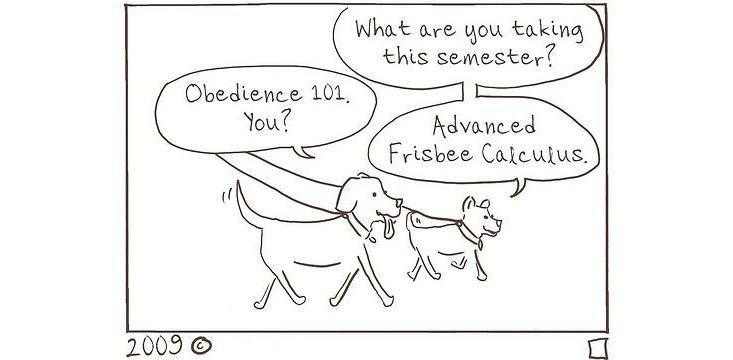 What are you taking
this semester?
Obedience 101.
You?
Advanced
Frisbee Calculus.
2009 ©